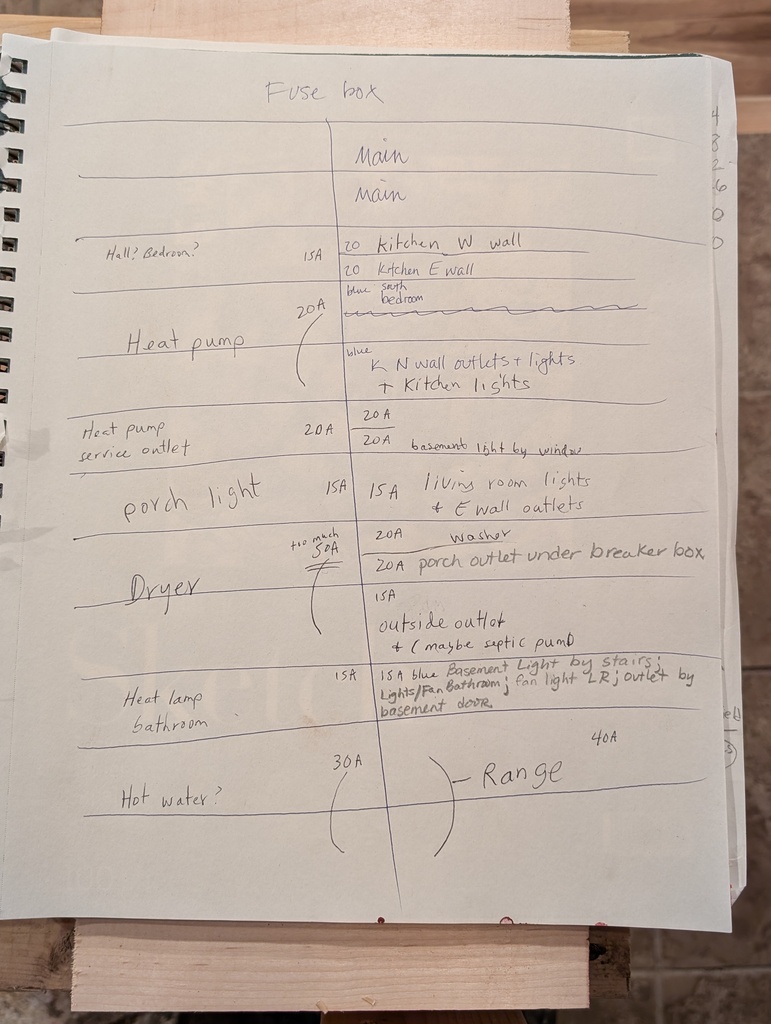 Fuse box
Main
Main
Hall? Bedroom? 15A
20 Kitchen W wall
20 Kitchen E wall
20A
Heat pump
blue south
bedroom
blue
K N wall outlets + lights
+ Kitchen lights
Heat pump 20A
service outlet
20A
20A basement light by window
porch light 15A
15A living room lights
+ E wall outlets
too much
50A
Dryer
20A washer
20A porch outlet under breaker box
15A
outside outlet
+ (maybe septic pump)
15A
Heat lamp
bathroom
15A blue Basement Light by stairs;
Lights/Fan Bathroom; fan light LR; outlet by
basement door
30A
Hot water?
40A
Range
4
8
2
6
0
0